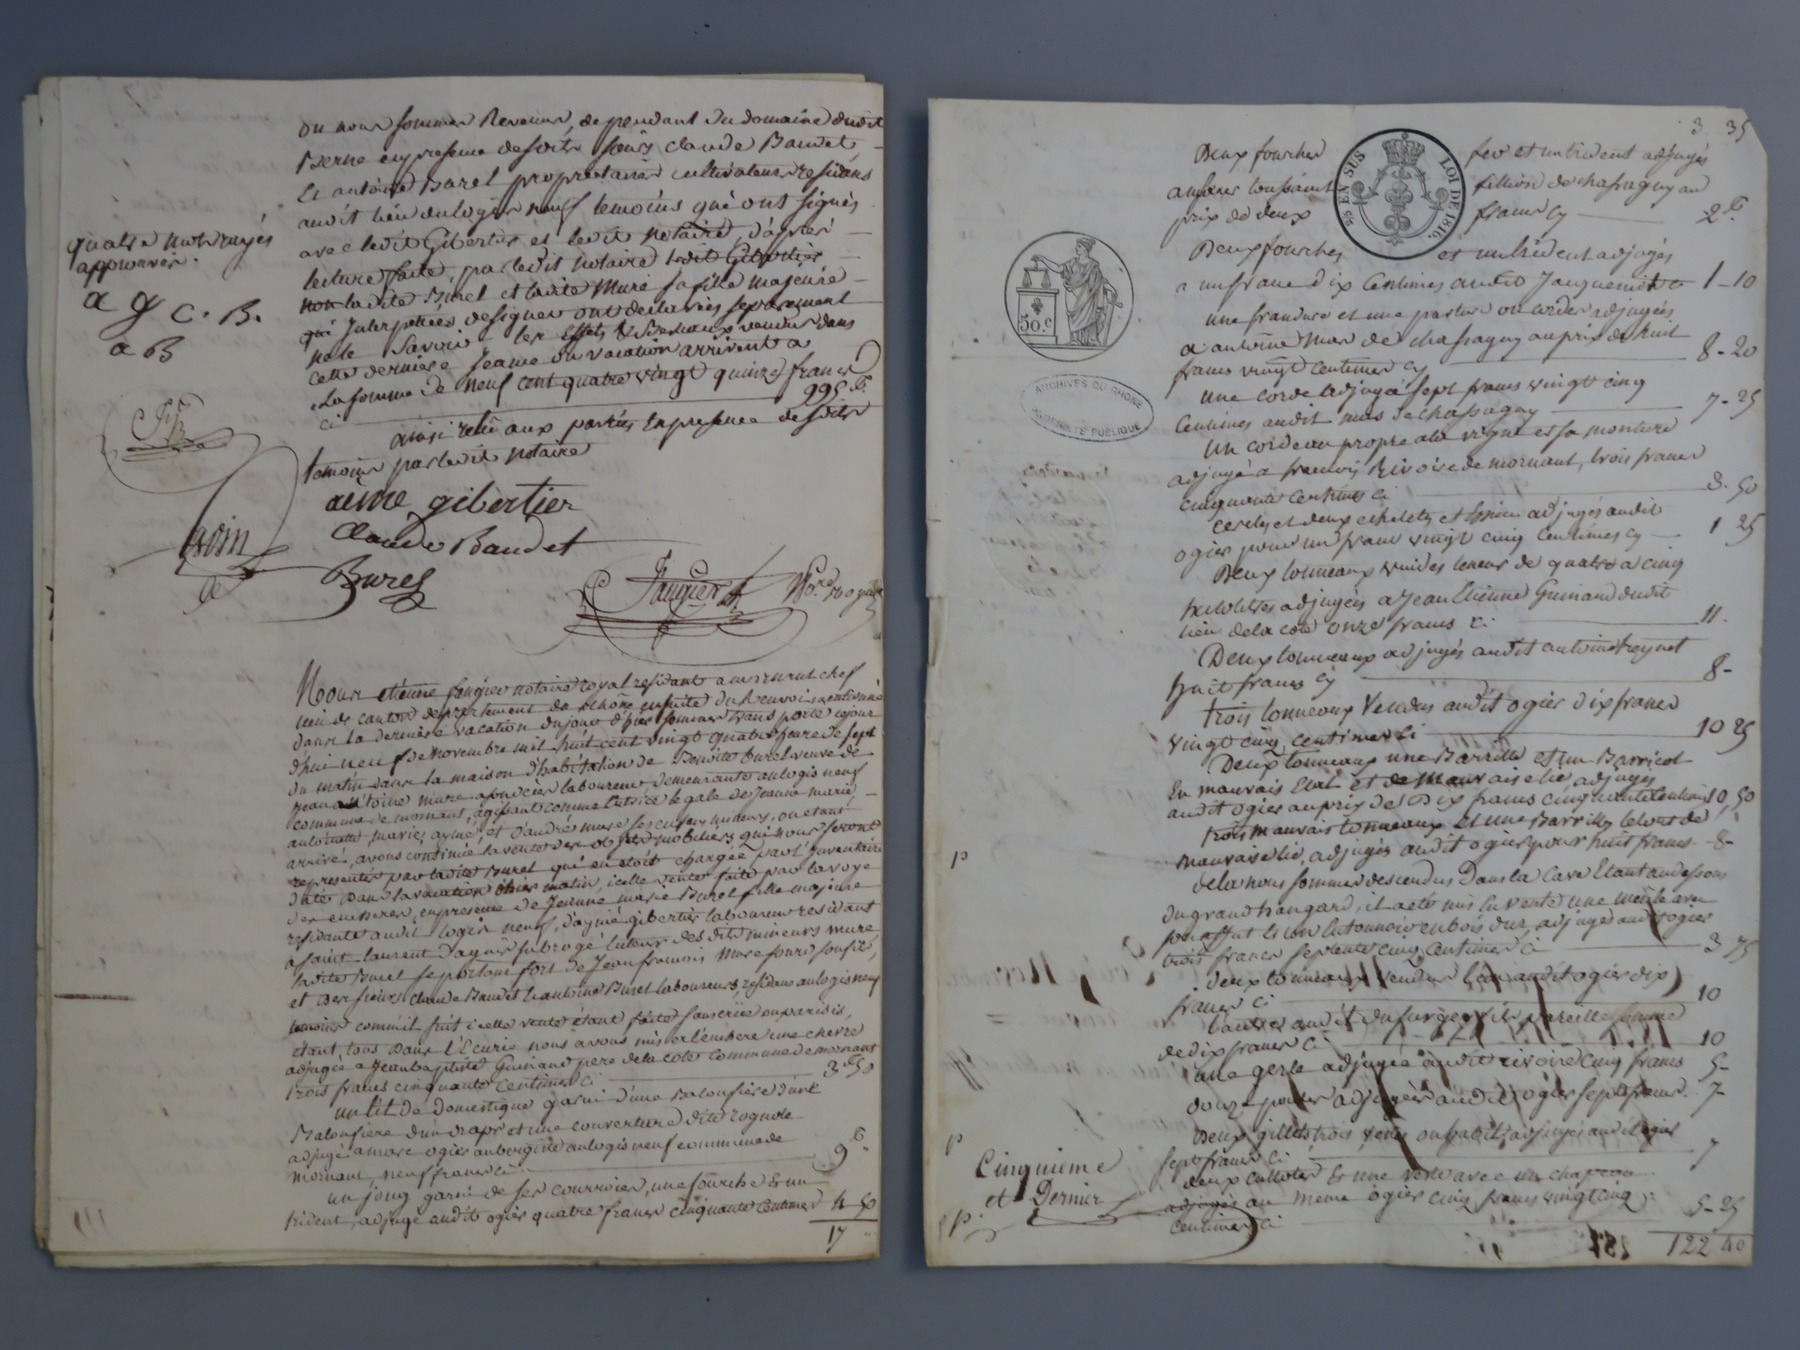 ou nous sommes Revenus, dependant du domaine dudit
Berne en presence desdits sieurs claude Baudet,
Et antoine Burel proprietaires cultivateurs residans
audit lieu du logis neuf temoins qui ont signés
avec ledit Gibertier et ledit notaire, d'après
lecture faite, par ledit notaire ledit Gibertier
non ladite Burel et ladite Mure sa fille majeure
qui Interpellées de signer ont declarées separement
ne le Savoir. les Effets & Bestiaux vendus dans
cette derniere seance ou vacation arrivent a
la somme de neuf cent quatre vingt quinze francs
ci 995 f.
ainsi relu aux parties En presence desdits
temoins par ledit notaire
quatre mots rayés
approuvés.
a g C. B.
a B
aimé gibertier
Claude Baudet
Burel
faugier
Nre Royal
Nous etienne faugier notaire royal residant a mornant chef
lieu de canton departement du Rhône ensuite du Renvoi mentionné
dans la derniere vacation du jour d'hier sommes transporté cejour
d'hui neuf de Novembre mil huit cent vingt quatre heure de sept
du matin dans la maison d'habitation de Benoite Burel veuve de
jean antoine mure agissant laboureur demeurante au logis neuf
commune de mornant, agissant comme tutrice legale de jeanne marie,
antoinette, marie, aymé, et d'andré mure ses enfans mineurs, ou etant
arrivé, avons continué la vente des objets mobiliers qui nous seront
representés par ladite Burel qui en etoit chargée par l'Inventaire
daté dans la vacation d'hier matin, icelle vente faite par la voye
des encheres, en presence de Jeanne marie Burel fille majeure
residante audit logis neuf, d'aymé gibertier laboureur residant
a saint laurent d'agny subrogé tuteur des dits mineurs mure
ladite Burel se portant fort de Jean francois Mure sourd son fils,
et des sieurs claude Baudet & antoine Burel laboureurs, residans au logis neuf
temoins commil suit icelle vente étant faite sans crie ou paridis,
étant, tous dans l'Ecurie nous avons mis et l'enchere une chevre
adjugée a Jean Baptiste Guinand pere de la côte commune de mornant
trois francs cinquante centimes ci 3 f 50
un lit de domestique garni d'une Baloufiere d'une
Baloufiere d'un drap et une couverture dite rognole
adjugé a marc ogier aubergiste au logis neuf commune de
mornant, neuf francs ci 9 f
un joug garni de ses courroies, une fourche & un
trident, adjugé audit ogier quatre francs cinquante centimes 4 50
17
3. 35
Deux fourches fer et un trident adjugés
au sieur toussaint fillion de chassagny au
prix de deux francs cy 2 f
Deux fourches et un trident adjugés
a un franc dix centimes audit Janguenit 1 - 10
une
a antoine Mas de chassagny au prix de huit
francs vingt centimes cy 8 - 20
une corde adjugé a sept francs vingt cinq
Centimes audit mas de chassagny 7 - 25
un cordeau propre a la vigne et sa monture
adjugé a francois Rivoire de mornant, trois francs
cinquante centimes ci 3. 50
cercles et deux echelets et adjugés audit
ogier pour un franc vingt cinq centimes cy 1 25
Deux tonneaux vuides teneur de quatre a cinq
hectolitres adjugés a Jean Etienne Guinand dudit
lieu de la côte onze francs ci 11.
Deux tonneaux adjugés audit antoine Freynet
huit francs cy 8 -
trois tonneaux Vendus audit ogier dix francs
vingt cinq centimes ci 10 25
Deux tonneaux une Barille et un Barricot
En mauvais Etat et de mauvaise lie adjugés
audit ogier au prix de Dix francs cinquante Centimes 10, 50
trois mauvais tonneaux et une Barrille le tout de
mauvaise lie, adjugés audit ogier pour huit francs - 8 -
de la nous sommes descendus Dans la Cave Etant au dessous
du grand hangard, il a eté mis En vente une meule avec
son affut & un Entonnoir en bois dur, adjugé audit ogier
trois francs septante cinq Centimes ci 3 75
deux tonneaux vendus audit ogier dix
francs ci 10
l'autre audit du forge pareille somme
de dix francs ci 10
une gerle adjugée audit rivoire cinq francs 5 -
douze adjugées audit ogier sept francs. 7 -
Deux gillets, trois vestes ou habits, adjugés audit ogier
sept francs ci 7
deux culottes & une veste avec un chapeau
adjugés au meme ogier cinq francs vingt cinq
centimes ci 5 - 25
122 40
p
p
Cinquieme
et Dernier
p.
25 EN SUS LOI DE 1816.
50. c
ARCHIVES DU RHONE
PROPRIÉTÉ PUBLIQUE